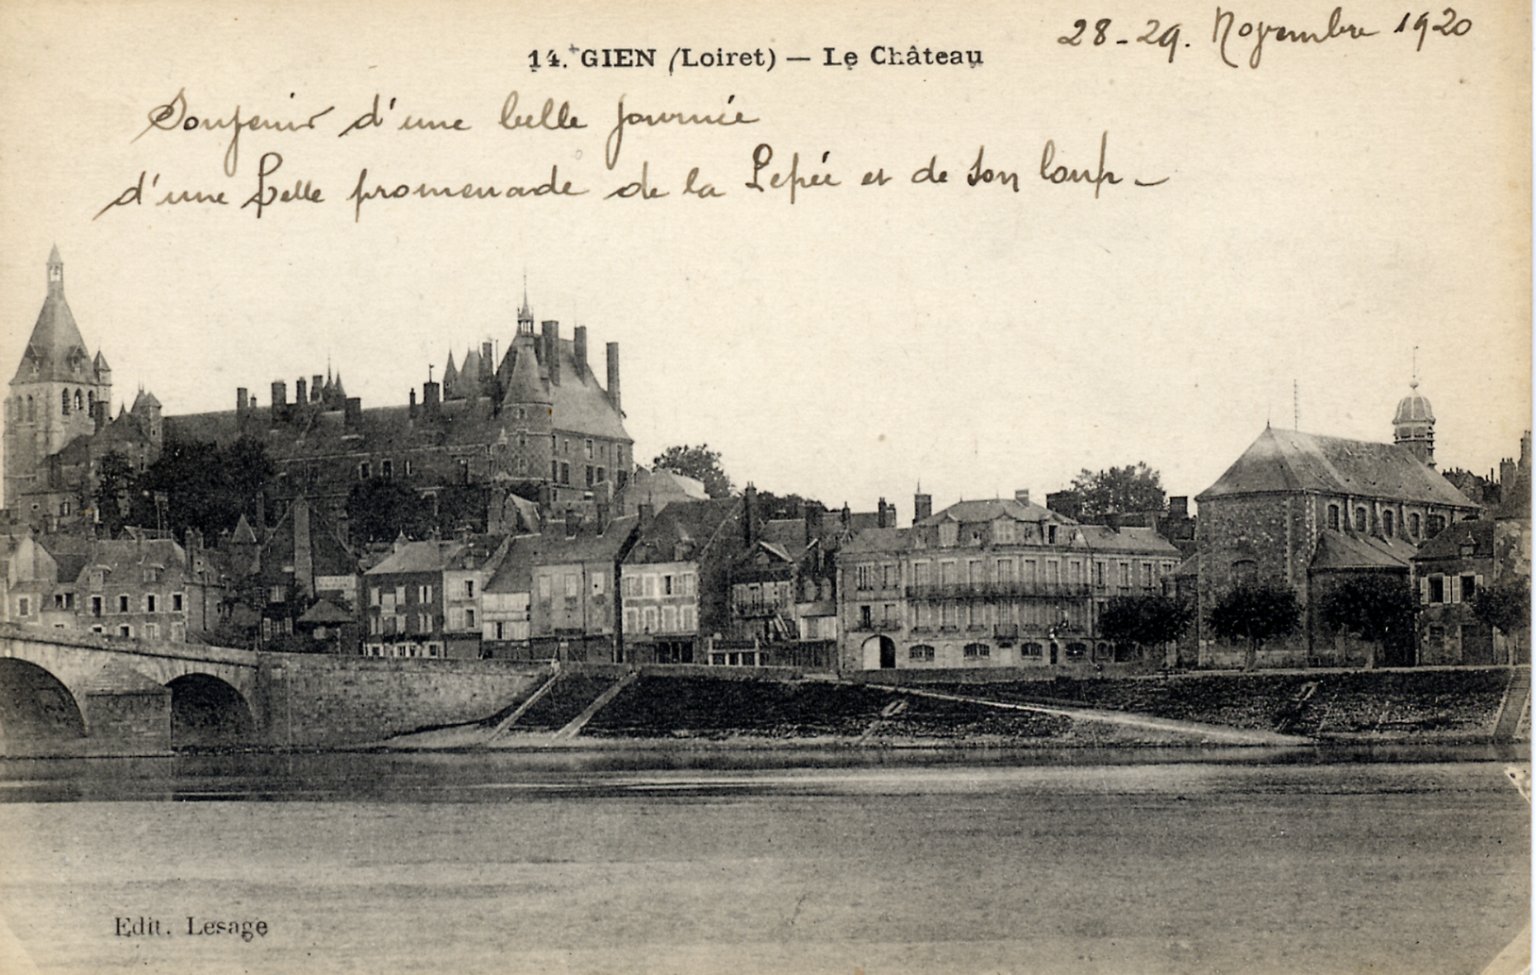 28-29. Novembre 1920
14. GIEN (Loiret) — Le Château
Souvenir d'une belle journée
d'une belle promenade de la Pepée et de son loup -
Edit. Lesage